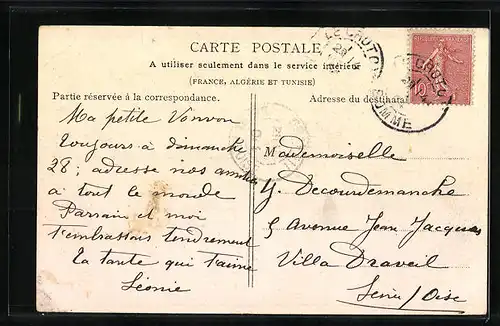 CARTE POSTALE
A utiliser seulement dans le service intérieur
(FRANCE, ALGÉRIE ET TUNISIE)
Partie réservée à la correspondance.
Adresse du destinatai
LE CROTOY
SOMME
10
Ma petite Vonvon
toujours à dimanche
28; adresse nos amitiés
à tout le monde
Parrain et moi
t'embrassons tendrement
ta tante qui t'aime
Léonie
Mademoiselle
Y. Decourdemanche
5 Avenue Jean Jacques
Villa Draveil
Seine/Oise